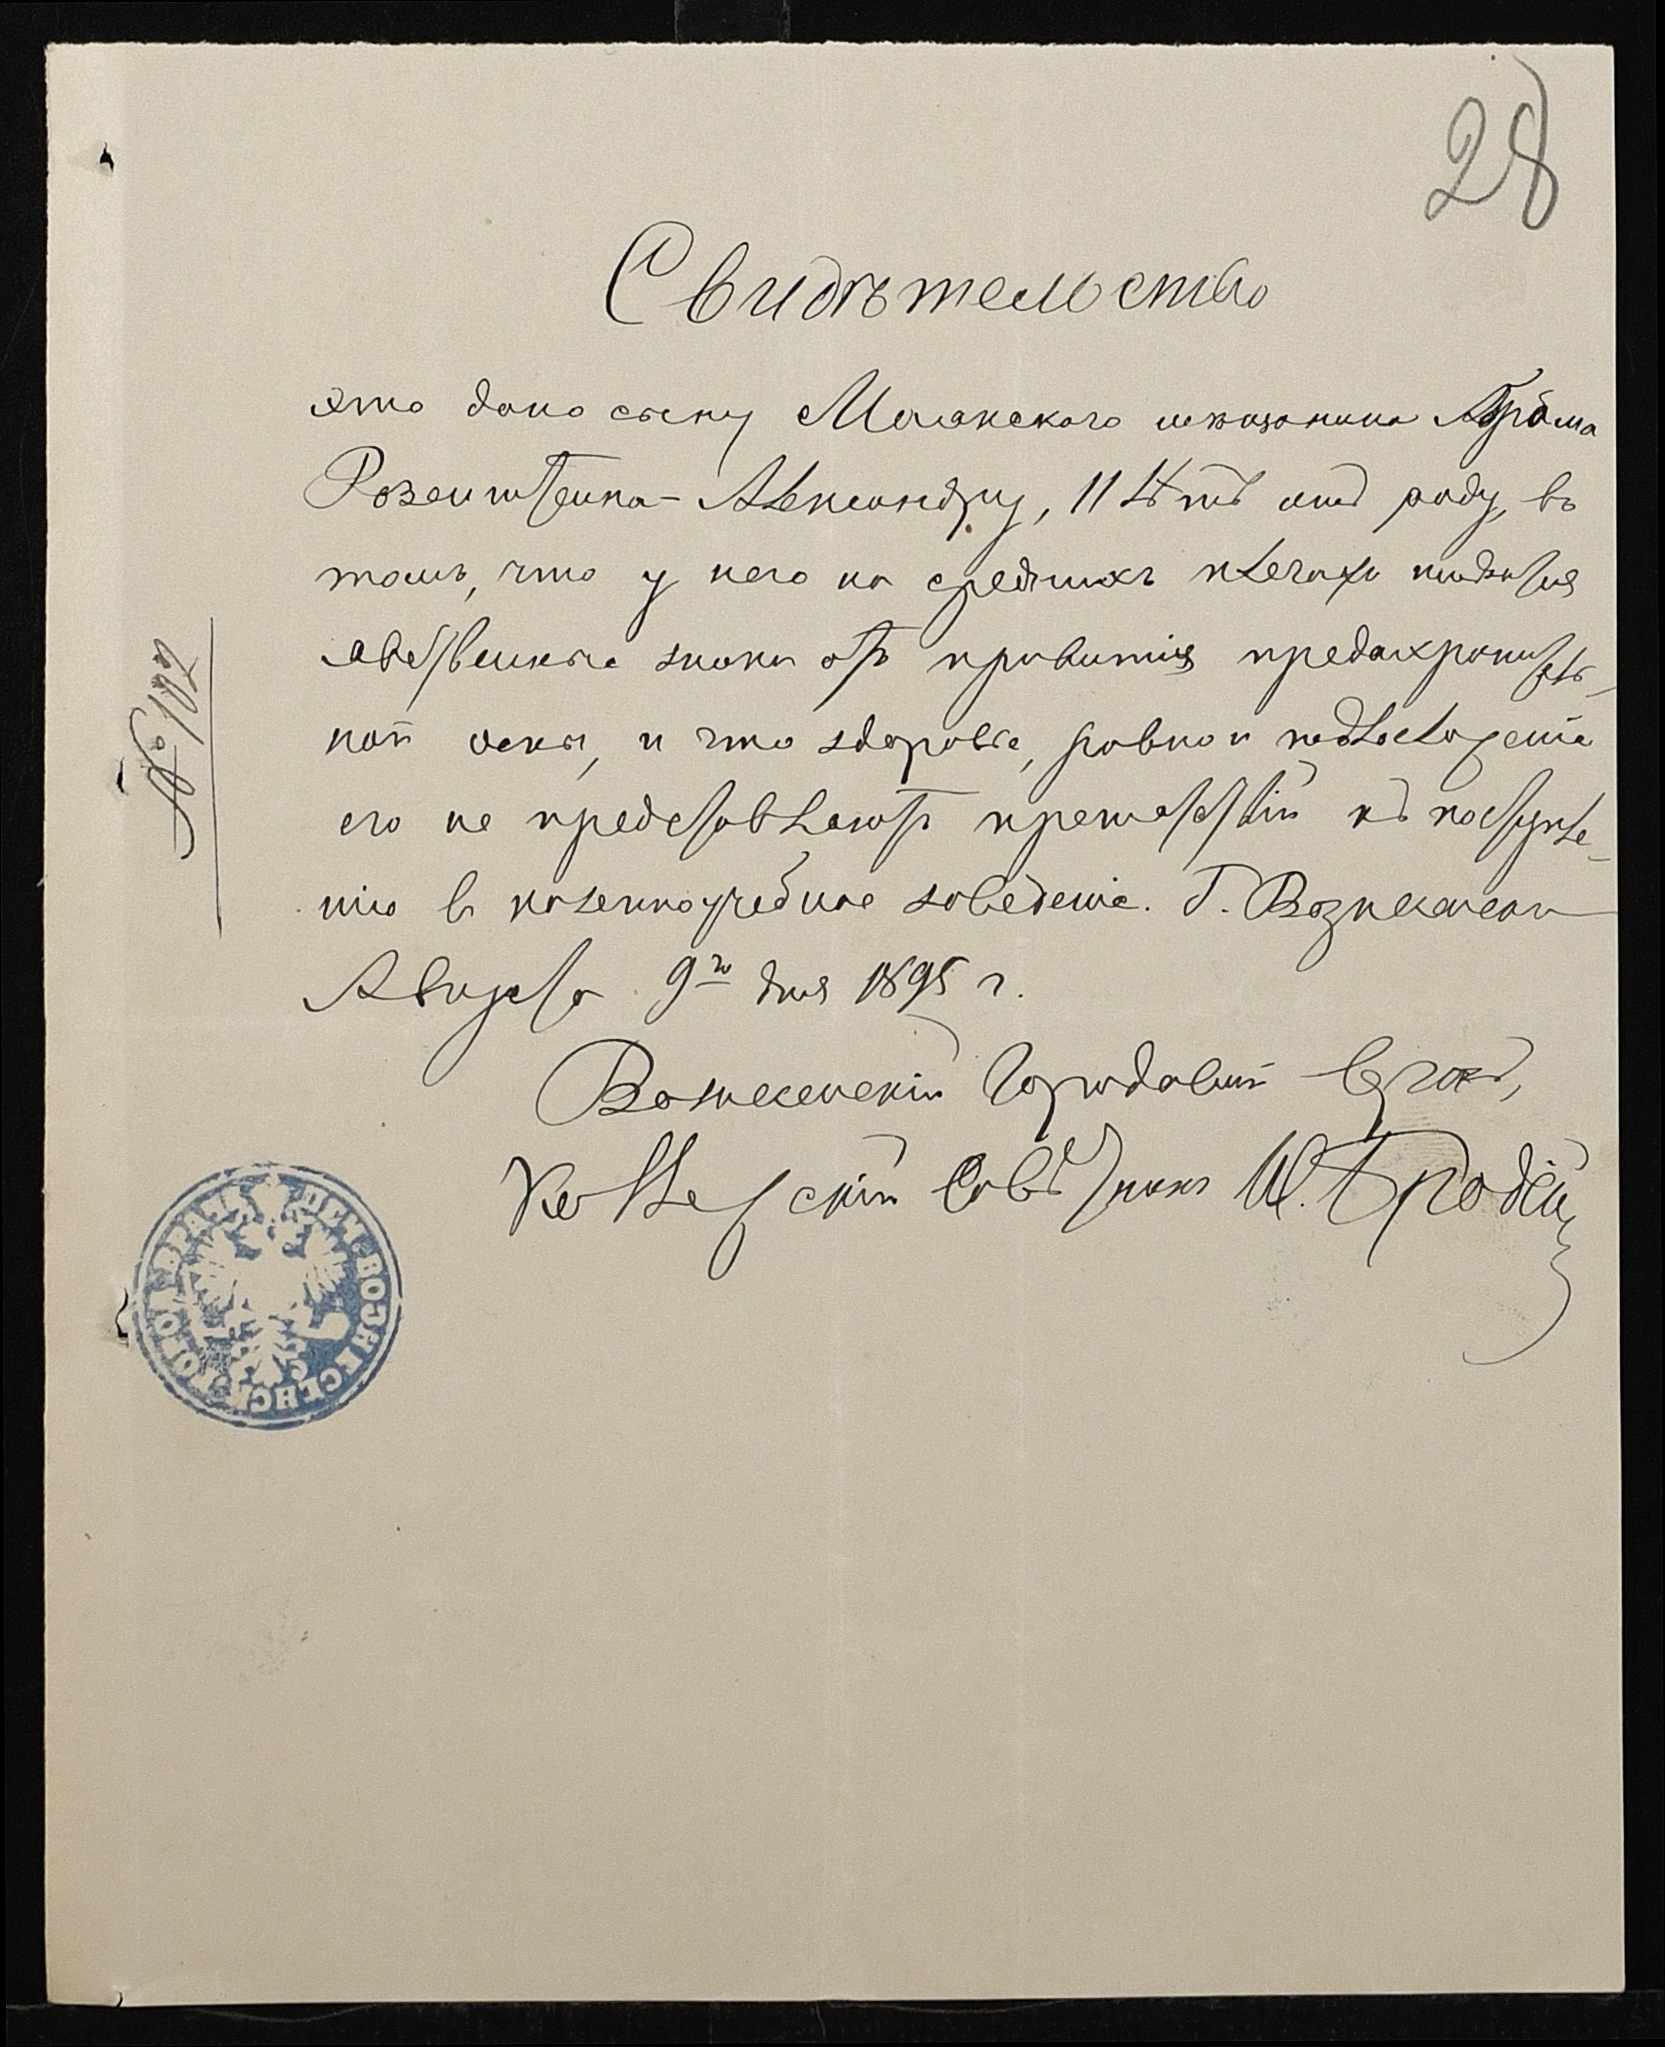 28
Свидѣтельство
это дано сыну мѣщанина Абрама
Розенштейна - Александру, 11 лѣтъ отъ роду, въ
томъ, что у него на плечахъ
явственные знаки отъ привитія предохранитель-
ной оспы, и что здоровье, равно и тѣлосложеніе
его не представляютъ препятствій къ поступле-
нію въ казенноучебное заведеніе. Г. Вознесенскъ
Августа 9го дня 1895 г.
Вознесенскій Городовый врачъ,
Коллежскій Совѣтникъ М. Бродскій
№ 102
ПЕЧ. ВОЗНЕСЕНСК. ГОРОД. ВРАЧА